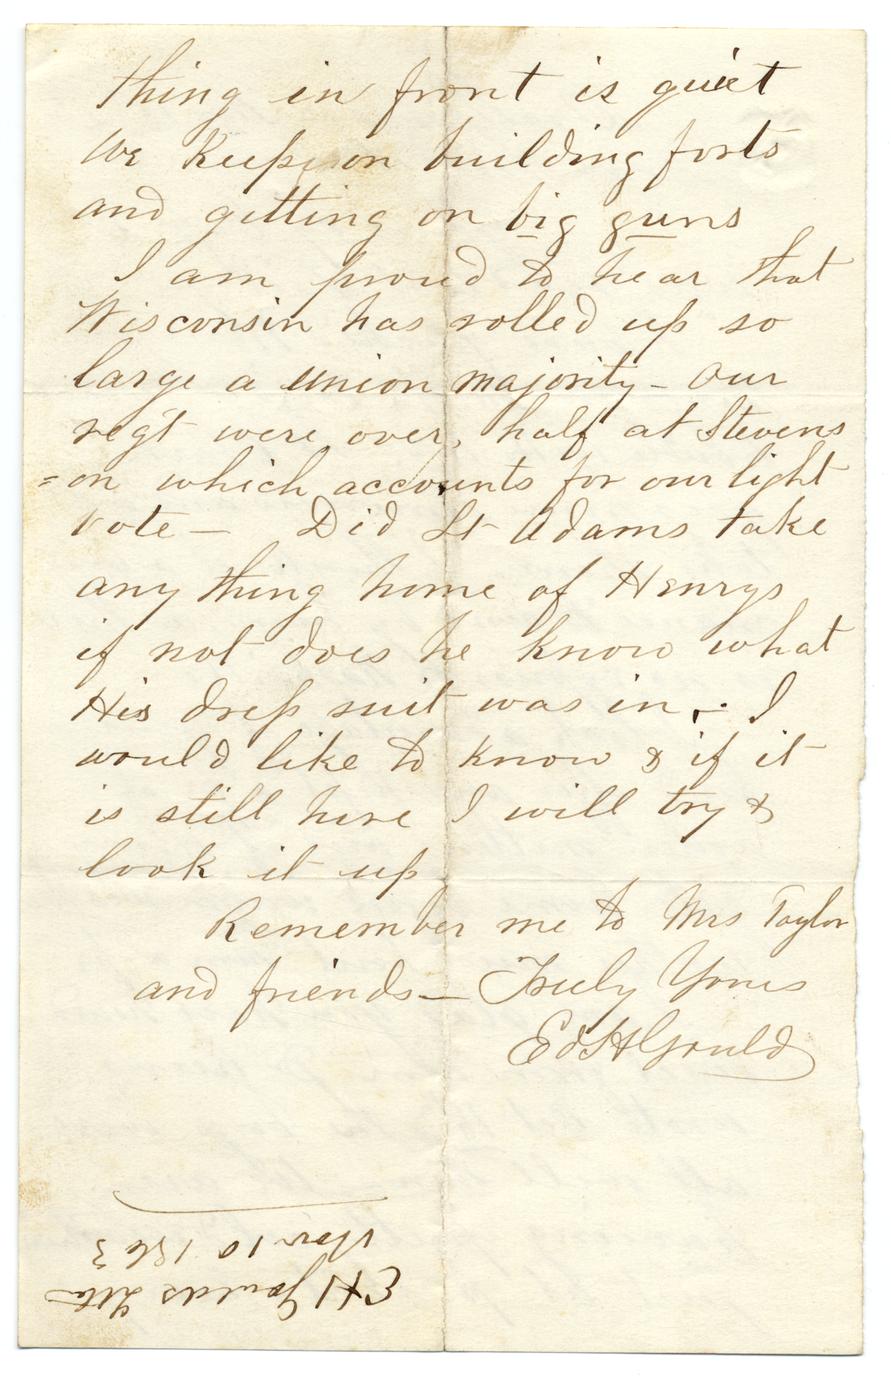 thing in front is quiet
we keeps on building forts
and getting on big guns
I am proud to hear that
Wisconsin has rolled up so
large a union majority - our
regt were over, half at Stevens
=on which accounts for our light
vote - Did Lt Adams take
any thing home of Henrys
if not does he know what
His dress suit was in, - I
would like to know & if it
is still here I will try &
look it up
Remember me to Mrs Taylor
and friends - Truly Yours
Ed H Gould
E H Goulds
Nov 10 1863